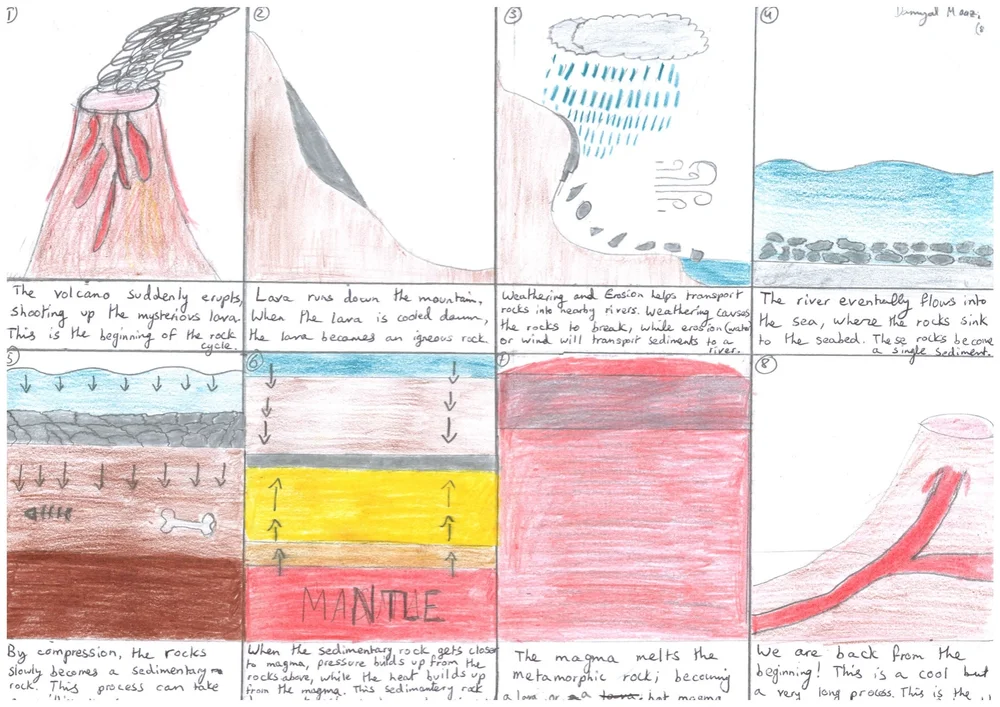 1
2
3
4
The volcano suddenly erupts,
shooting up the mysterious lava.
This is the beginning of the rock
cycle.
Lava runs down the mountain,
When the lava is cooled down,
the lava becomes an igneous rock.
Weathering and Erosion helps transport
rocks into nearby rivers. Weathering causes
the rocks to break, while erosion (water
or wind will transport sediments to a
river.
The river eventually flows into
the sea, where the rocks sink
to the seabed. These rocks become
a single sediment.
5
6
7
8
MANTLE
By compression, the rocks
slowly becomes a sedimentary
rock. This process can take
When the sedimentary rock gets close
to magma, pressure builds up from the
rocks above, while the heat builds up
from the magma. This sedimentary rock
The magma melts the
metamorphic rock; becoming
a lava or a lava. hot magma
We are back from the
beginning! This is a cool but
a very long process. This is the